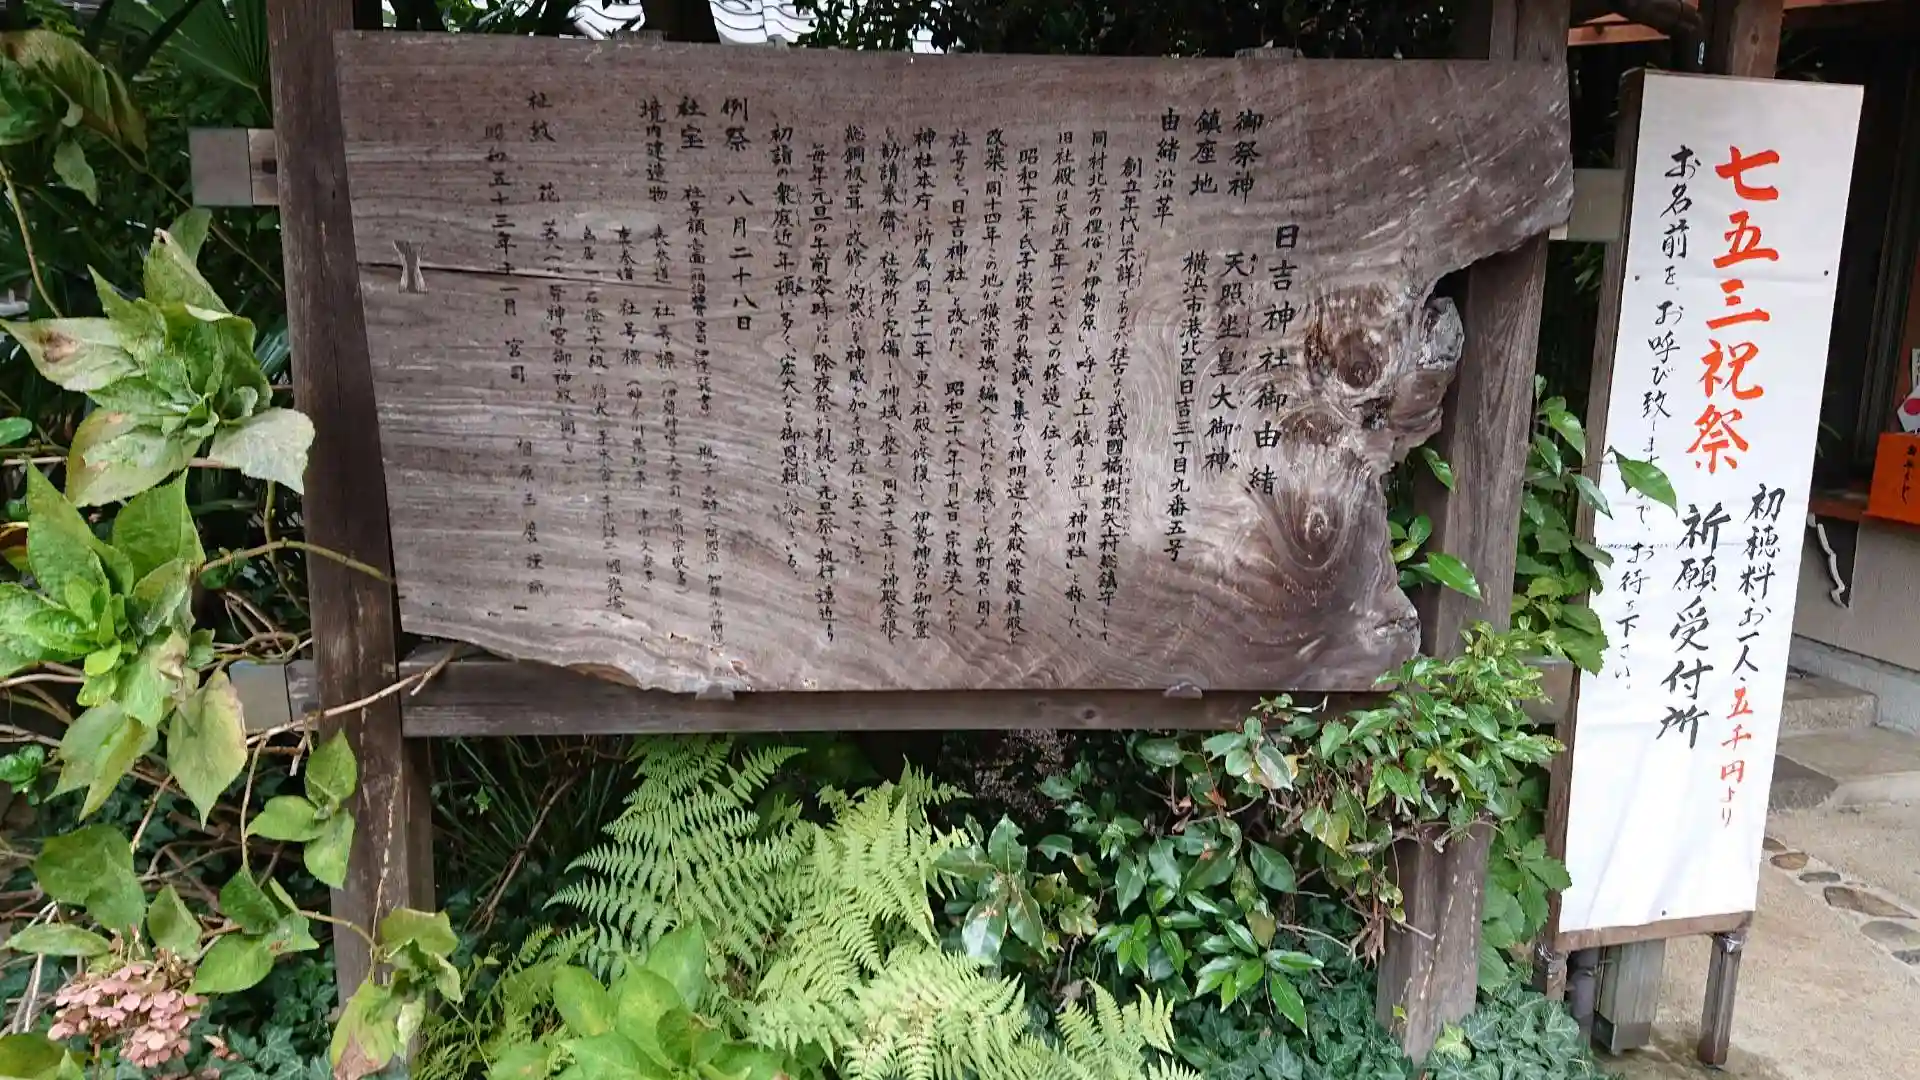 日吉神社御由緒
御祭神 天照坐皇大御神
鎮座地 横浜市港北区日吉三丁目九番五号
由緒沿革
創立年代は不詳であるが、往古より武蔵國橘樹郡矢上村総鎮守として
同村北方の俚俗「お伊勢原」と呼ぶ丘上に鎮まり坐し「神明社」と称した。
旧社殿は天明五年(一七八五)の修造と伝える。
昭和十一年、氏子崇敬者の熱誠を集めて神明造りの本殿幣殿拝殿を
改築、同十四年この地が横浜市域に編入されたのを機とし新町名に因み
社号を「日吉神社」と改めた。 昭和二十八年十月七日宗教法人となり
神社本庁に所属、同五十一年、更に社殿を修復して伊勢神宮の御分霊
を勧請奉齋し、社務所を完備して神域を整え同五十三年には神殿屋根
総銅板葺に改修し灼然なる神威を加えて現在に至っている。
毎年元旦の午前零時には、除夜祭に引続いて元旦祭を執行、遠近より
初詣の衆庶近年頓に多く、宏大なる御恩頼に浴している。
例祭 八月二十八日
社宝 社号額
境内建造物 表参道 社号標
東参道 社号標
鳥居一 石段六十級
社紋 花菱
昭和五十三年十一月 宮司
七五三祝祭
初穂料・お一人・五千円より
祈願受付所
お名前を、お呼び致しますお待ち下さい。